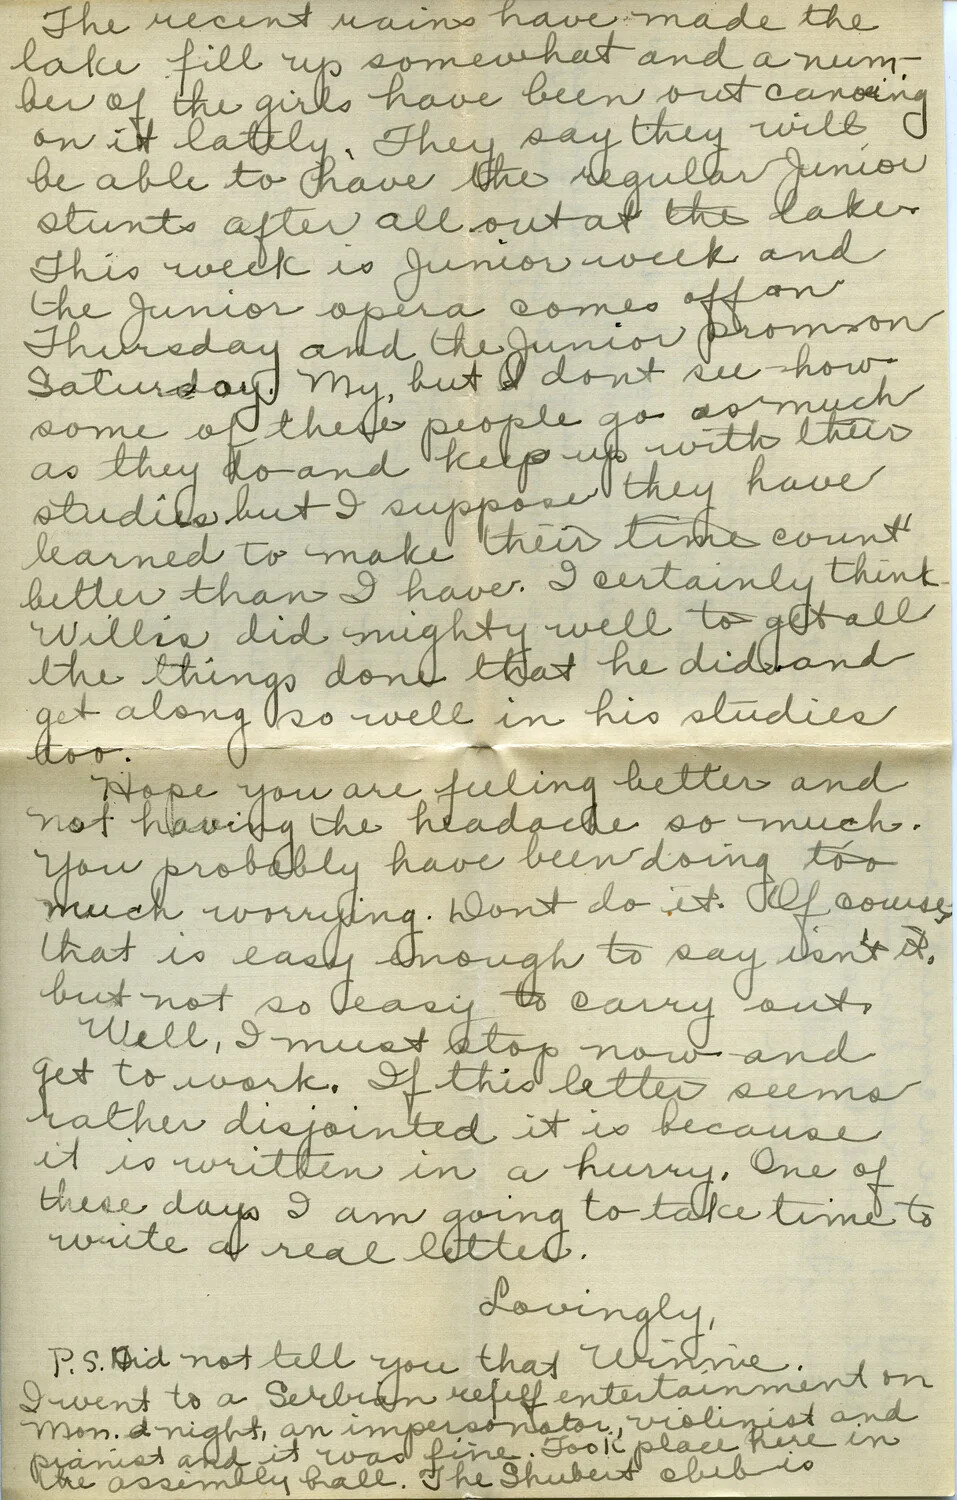 The recent rains have made the
lake fill up somewhat and a num-
ber of the girls have been out canoeing
on it lately. They say they will
be able to have the regular Junior
stunts after all out at the lake.
This week is Junior week and
the Junior opera comes off on
Thursday and the Junior prom on
Saturday. My, but I dont see how
some of these people go as much
as they do and keep up with their
studies but I suppose they have
learned to make their time count
better than I have. I certainly think
Willis did mighty well to get all
the things done that he did and
get along so well in his studies
too.
Hope you are feeling better and
not having the headache so much.
You probably have been doing too
much worrying. Dont do it. Of course,
that is easy enough to say isn't it,
but not so easy to carry out.
Well, I must stop now and
get to work. If this letter seems
rather disjointed it is because
it is written in a hurry. One of
these days I am going to take time to
write a real letter.
Lovingly,
Winnie.
P.S. Did not tell you that
I went to a Serbian relief entertainment on
Mon. night, an impersonator, violinist and
pianist and it was fine. Took place here in
the assembly hall. The Shubert club is